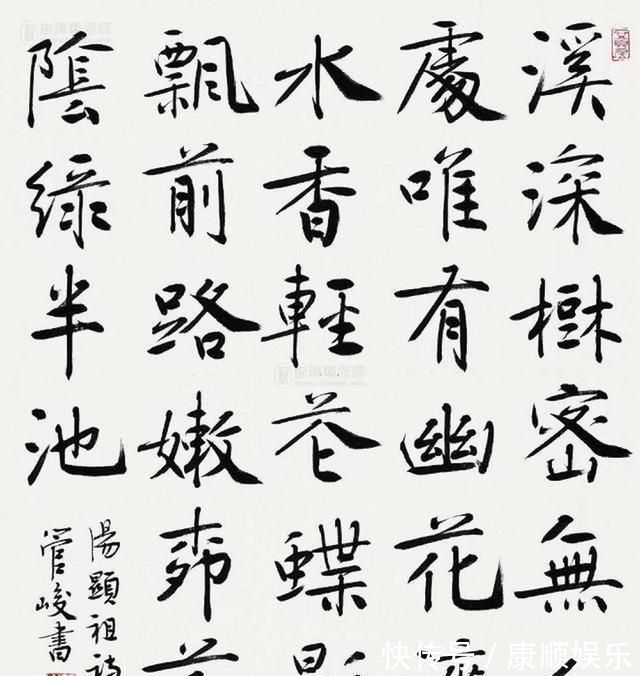 溪深樹密無
處唯有幽花
水香輕花蝶影
飄前路嫩柳
陰綠半池
湯顯祖詩
管峻書
快传号/康顺娱乐